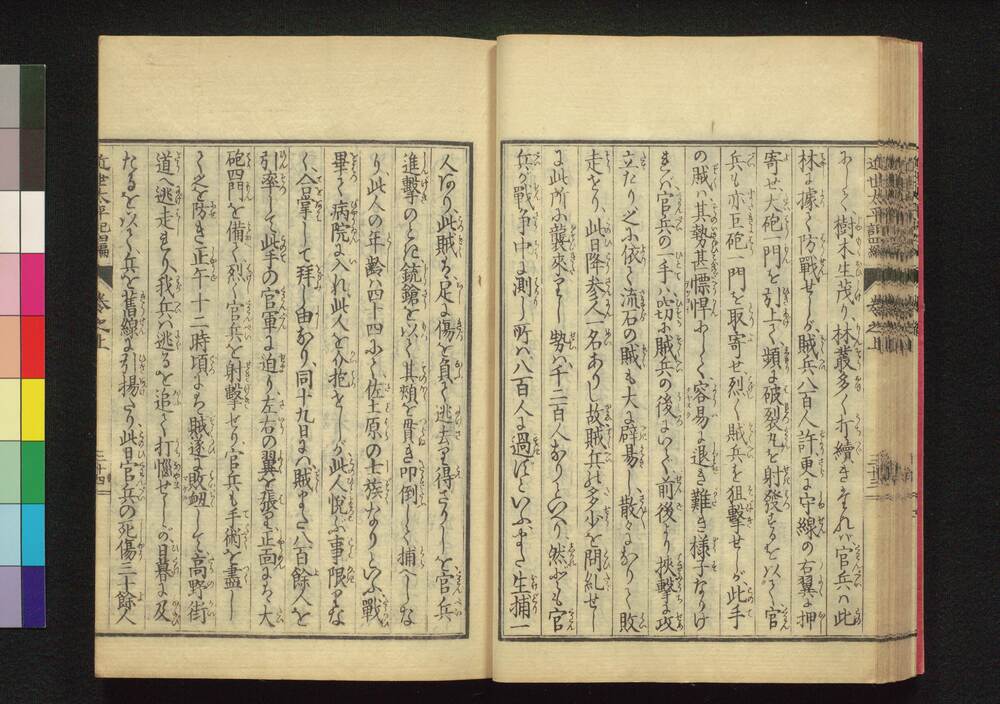 近世太平記四編 巻之上 三十三
樹木生茂り林叢多く打續きそれバ官兵ハ此
林に據て防戰せしが賊兵八百人許更に守線の右翼に押
寄せ大砲一門を引上て頻に破裂丸を射發するを以て官
兵も亦巨砲一門を取寄せ烈く賊兵を狙撃せしが此手
の賊其勢甚慓悍にして容易に退き難き様子なりけ
官兵の一手ハ密に賊兵の後にいで前後より挾撃に攻
立たり之に依て流石の賊も大に辟易し散々になりて敗
走せり此日降參人一名ありし故賊兵の多少を問糺せし
に此所に襲來せし勢ハ千二百人なりといへり然ども官
兵が戰爭中に測し所ハ八百人に過ずといふまた生捕一
人あり此賊ハ足に傷を負て逃去り得ざりしを官兵
進撃のとき銃鎗を以て其頰を貫き叩倒して捕へしな
り此人の年齡ハ四十四にて佐土原の士族なりといふ戰
畢て病院に入れ此人を介抱せしが此人悦ぶ事限りな
く合掌して拜し由なり同十九日にハ賊また八百餘人を
引率して此手の官軍に迫り左右の翼を張り正面にハ大
砲四門を備て烈く官兵を射撃せり官兵も手術を盡し
て之を防き正午十二時頃にハ賊遂に敗衄して高野街
道へ逃走せり我兵ハ逃るを追て打惱せしが日暮に及
たるを以て兵を舊線に引揚たり此日官兵の死傷三十餘人
近世太平記四編 巻之上 三十四